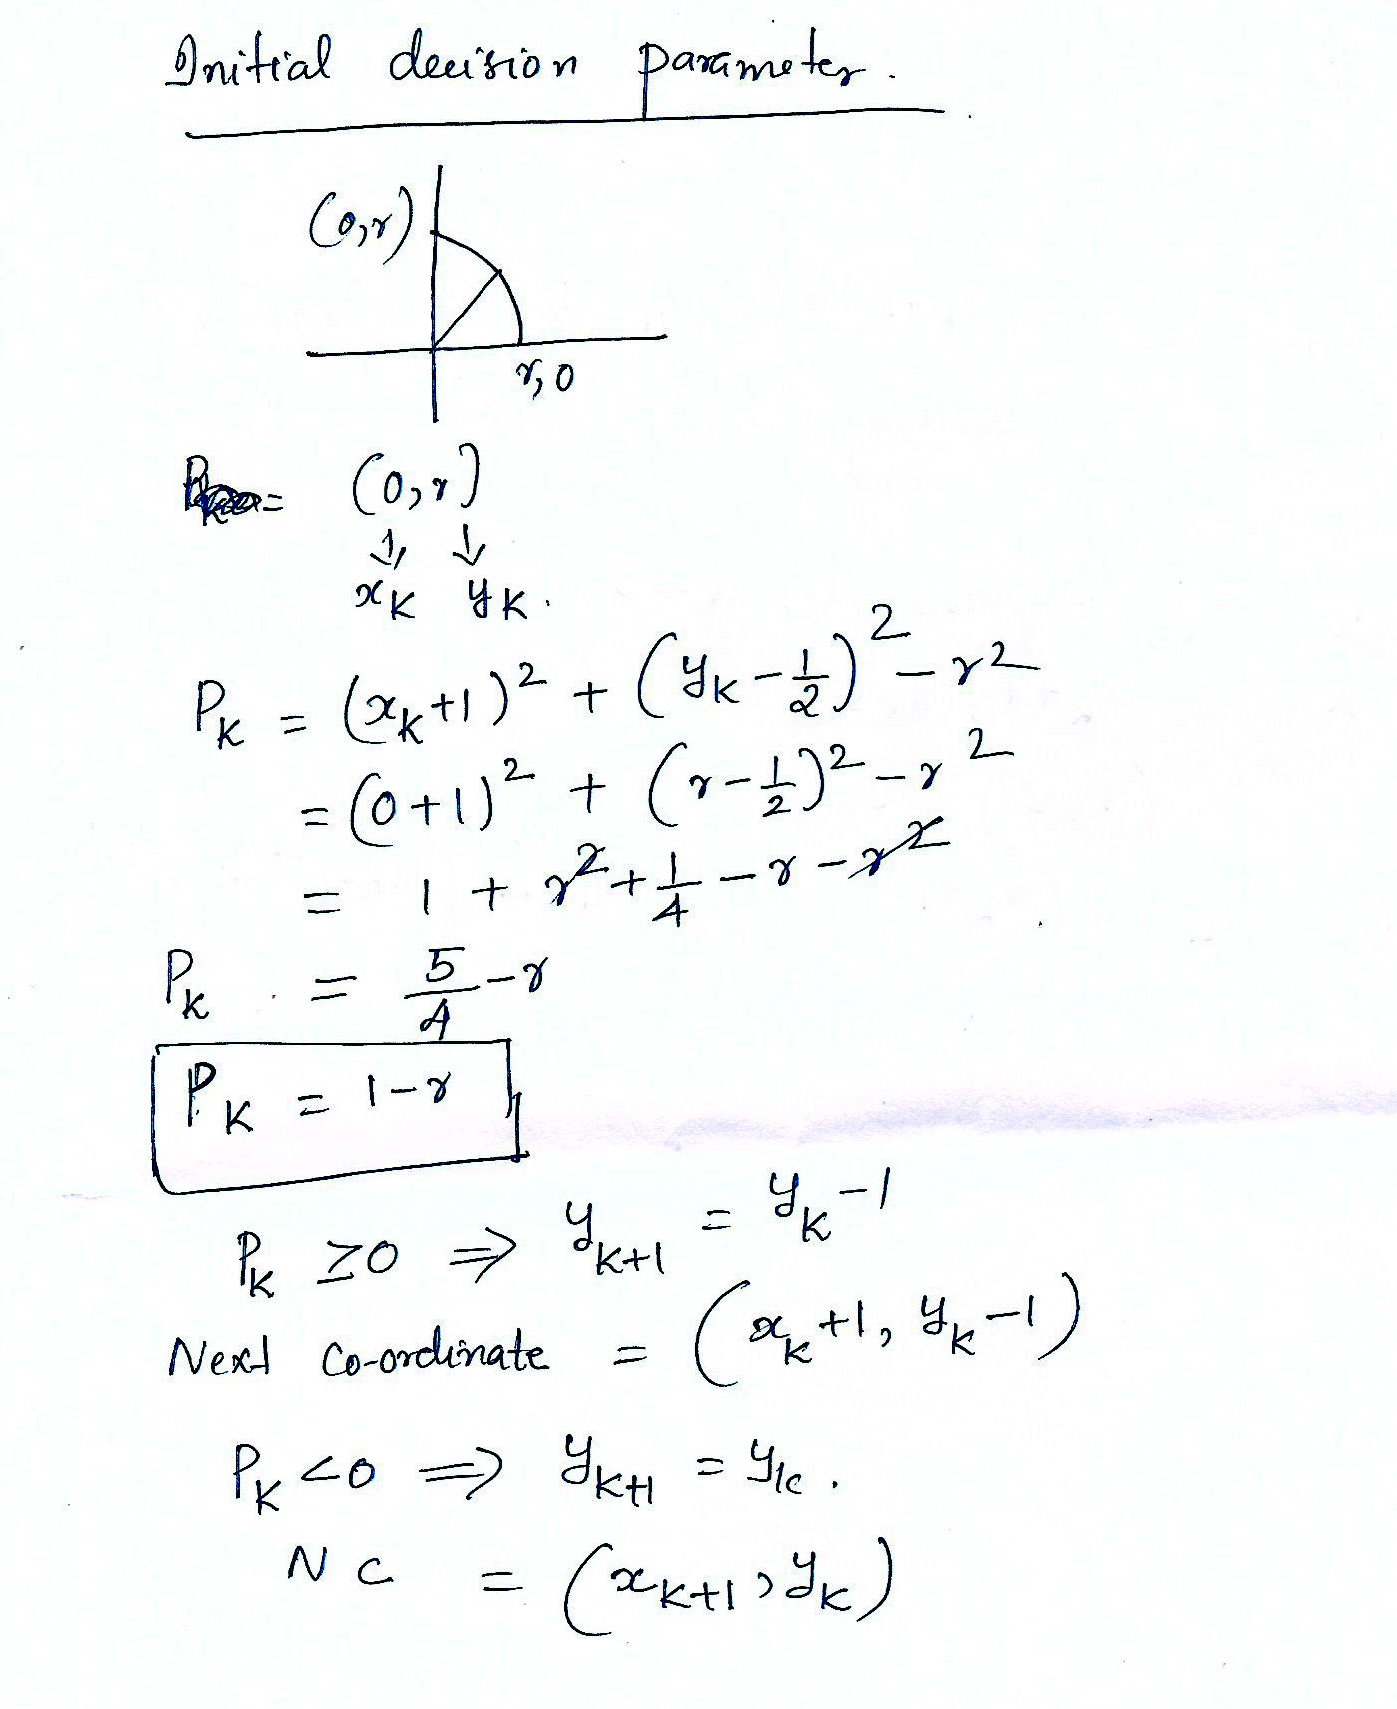 Initial decision parameter.
(0,r)
r, 0
= (0, r)
↓ ↓
xₖ yₖ.
Pₖ = (xₖ+1)² + (yₖ-½)² - r²
= (0+1)² + (r-½)² - r²
= 1 + r² + ¼ - r - r²
Pₖ = 5/4 - r
Pₖ = 1-r
Pₖ ≥0 ⇒ yₖ₊₁ = yₖ-1
Next Co-ordinate = (xₖ+1, yₖ-1)
Pₖ <0 ⇒ yₖ₊₁ = yₖ.
N C = (xₖ₊₁, yₖ)